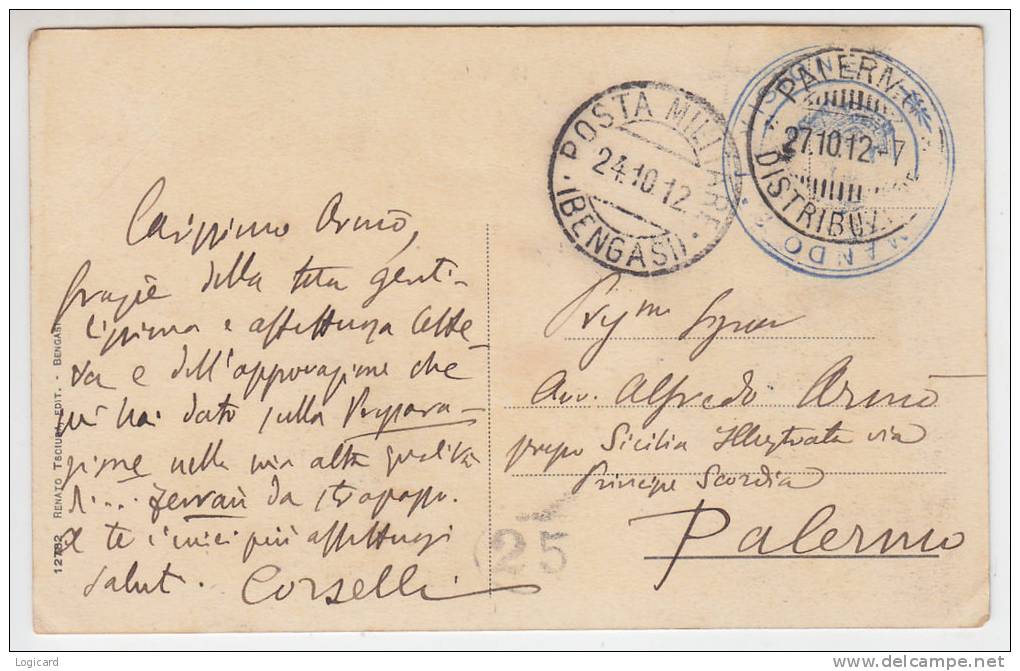 Carissimo Armò,
grazie della tua genti-
lissima e affettuosa lette-
ra e dell'approvazione che
mi hai dato sulla Prepara-
zione nella mia alta qualità
di... ferrari da strapazzo.
a te i miei più affettuosi
saluti. Corselli
12782 RENATO TSCIUBA EDIT. - BENGASI
POSTA MILITARE
24.10.12
(BENGASI)
PALERMO
27.10.12-7
DISTRIBUZIONE
MANDO
Signor
Avv. Alfredo Armò
presso Sicilia Illustrata via
Principe Scordia
Palermo
25
Logicard
www.delcampe.net